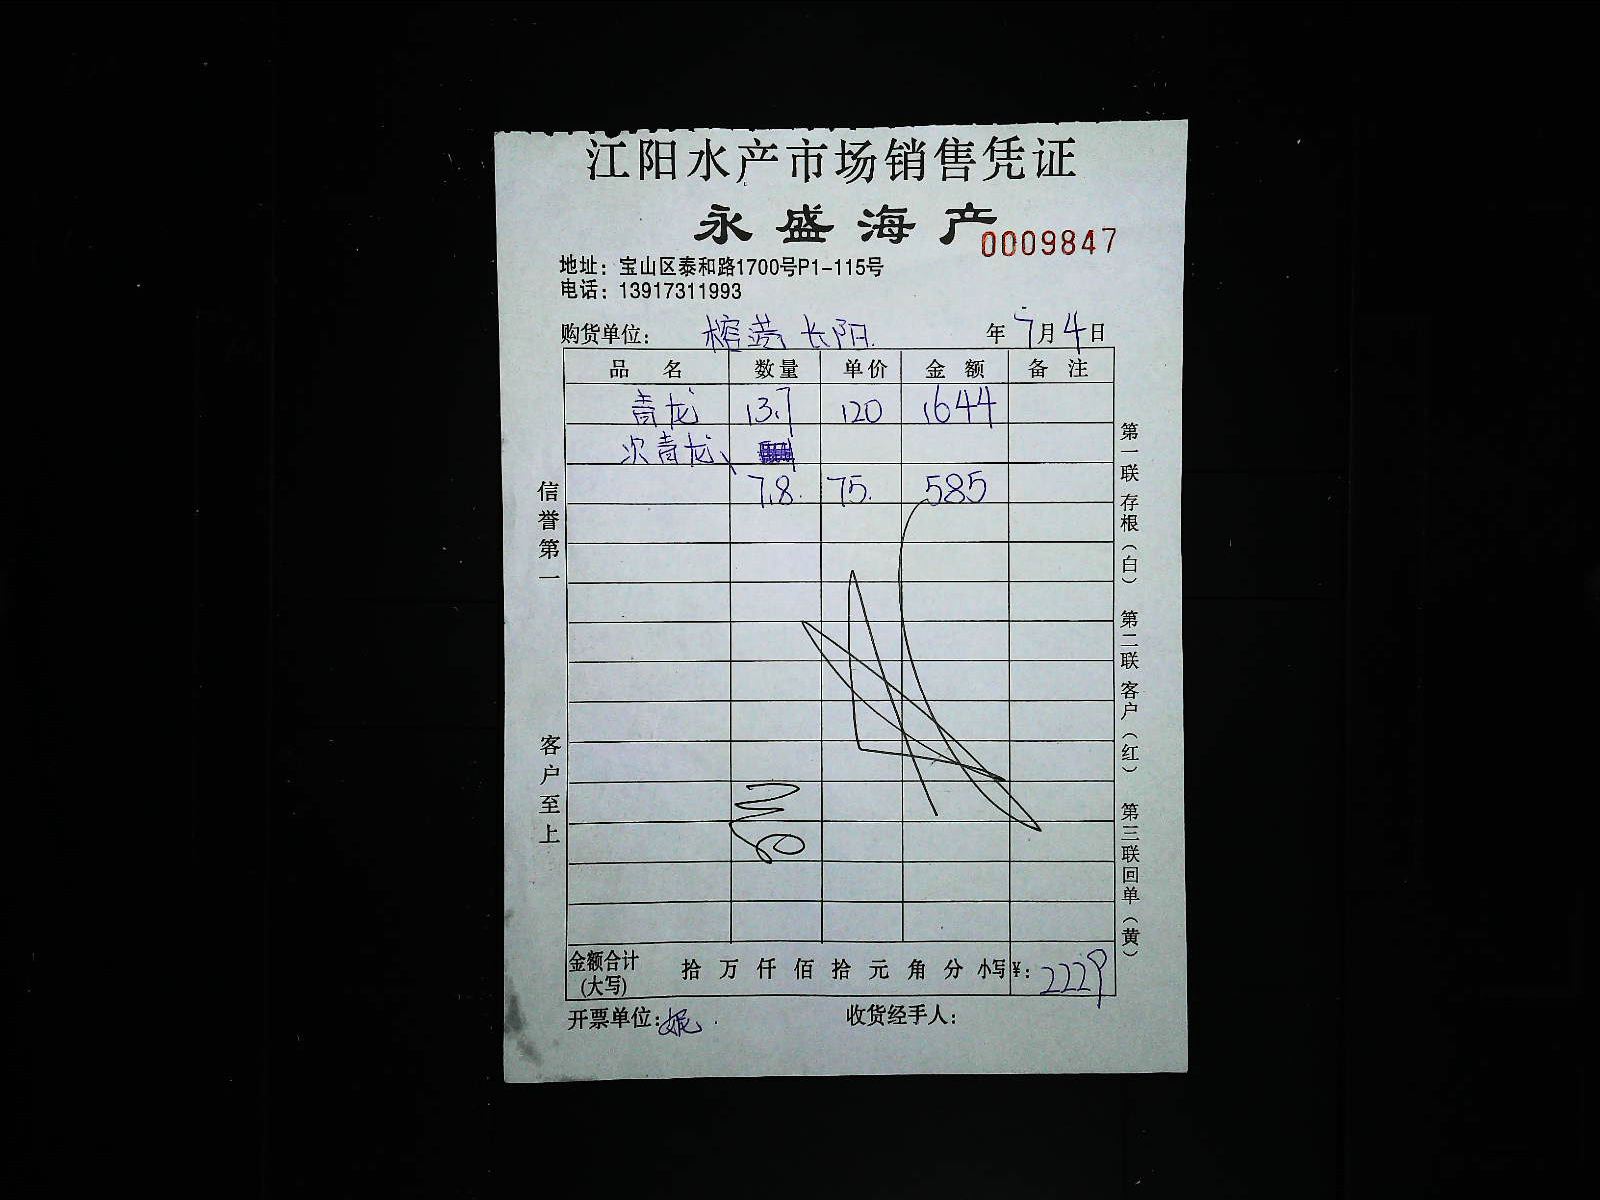 江阳水产市场销售凭证
永盛海产 0009847
地址：宝山区泰和路1700号P1-115号
电话：13917311993
购货单位： 榕港 长阳. 年 7月4日
品名 数量 单价 金额 备注
青龙 13.7 120 1644
次青龙
7.8. 75. 585
信誉第一
客户至上
第一联 存根（白） 第二联 客户（红） 第三联 回单（黄）
金额合计（大写） 拾 万 仟 佰 拾 元 角 分 小写¥：2229
开票单位：妮. 收货经手人：